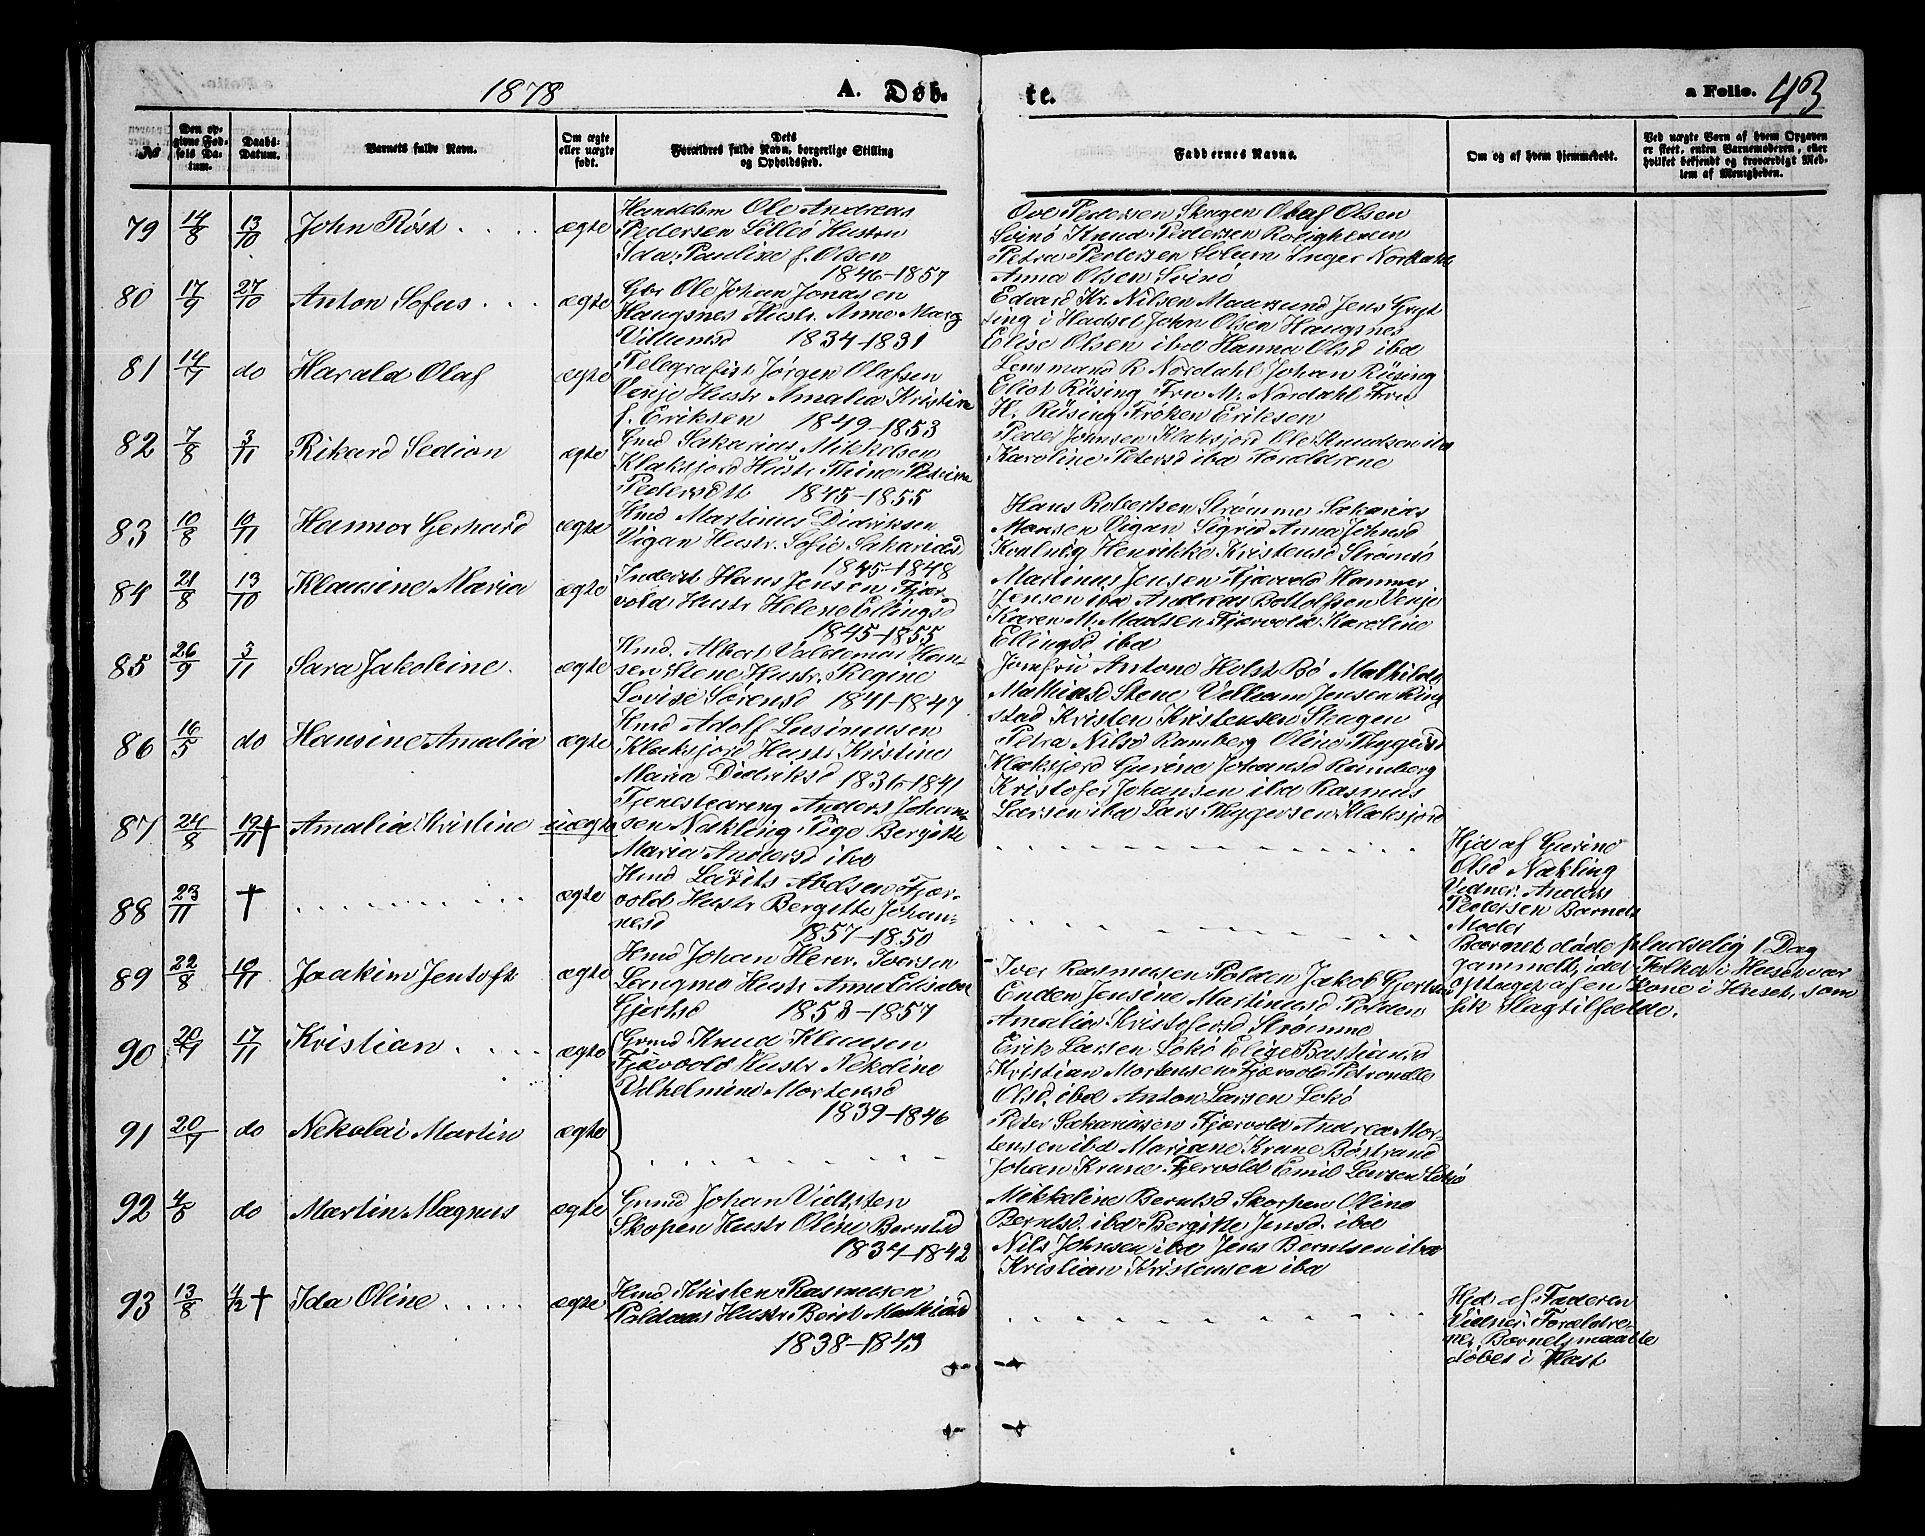 1878 A. Døb-
te. a Folio. 43
No
Den op-
givne Fød-
sels Da-
tum.
Daabs-
Datum.
Barnets fulde Navn.
Om ægte
eller uægte
født.
Dets
Forældres fulde Navn, borgerlige Stilling
og Opholdssted.
Faddernes Navne.
Om og af hvem hjemmedøbt.
Ved uægte Børn af hvem Opgaven
er skeet, enten Barnemoderen, eller
hvilket bekjendt og troværdigt Med-
lem af Menigheden.
79 14/8 13/10 John Röst ægte
Handelsm Ole Andreas
Pedersen Lillö Hustru
Ida Pauline f. Olsen
1846-1857
Ove Pedersen Skagen Olaf Olsen
Svinö Knud Pedersen Rolighenen
Petra Pedersen Selum Inger
Anna Olsen Svinö
80 17/9 27/10 Anton Sofus ægte
Gbr Ole Johan Jonasen
Haugsnes Hustr. Anne Marg
Villumsd 1834-1831
Edvard Kr. Nilsen Maursund Jens Gryt
ting i Hadsel John Olsen Haugsnes
Elise Olsen ibd Hanna Olsd ibd
81 14/7 do Harald Olaf ægte
Telegrafist Jörgen Olafsen
Venje Hustr Amalia Kristine
f. Eriksen 1849-1853
Lensmand R. Nordahl Johan Rüsing
Eliot Rüsing Fru M. Nordahl Fru
H. Rüsing Fröken Eriksen
82 7/8 3/11 Rikard Sedion ægte
Gmd Sakarias Mikkelsen
Klaksjord Hustr Thine Petrine
Pedersdtt 1845-1855
Peder Johnsen Klaksjord Ole Knudsen ibd
Karoline Petersd ibd Forældrene
83 10/8 10/11 Hannor Gerhard ægte
Hmd Martinus Didriksen
Vigan Hustr. Sofie Sakariasd
1845-1848
Hans Robertsen Strömme Sakarias
Monsen Vigan Sigrid Anna Johnsd
Henrikke Kristensd Strömsö
84 21/8 13/10 Klausine Maria ægte
Inderst Hans Jensen Fjær
vold Hustr Helene Ellingsd
1845-1855
Martinus Jensen Fjærvold Hammer
Jensen ibd Andreas Bottolfsen Venje
Karen M. Madsen Fjærvold Karoline
Ellingsd ibd
85 26/9 3/11 Sara Jakobine. ægte
Hmd. Albert Valdemar Han-
sen Stene Hustr. Regine
Lovise Sörensd 1841-1847.
Jomfru Antone Holst Bö Mathilde
Mathiasd Stene Velleam Jensen Ring
stad Kristen Kristensen Skagen
86 16/5 do Hansine Amalia ægte
Hmd Adolf Lusinusen
Klaksjord Hustr Kristine
Maria Didriksd 1836-1841
Petra Nilsd Ramberg Oline Thygersd
Klaksjord Gurine Johansd Ramberg
Kristofer Johansen ibd Rasmus
Larsen ibd Lars Thygersen Klaksjord
87 24/8 19/11 † Amalia Kristine uægte
Tjenestedreng Anders Johann-
sen Nækling Pige Bergitte
Maria Andersd ibd
Hjd af Gurine
Olsd Nækling
Vidner: Anders
Pedersen Barnets
Moder
88 23/11 † ægte
Hmd Laurits Abelsen Fjær-
vold Hustr Bergitte Johan-
nesd 1857-1850
Barnet döde pludselig 1 Dag
gammelt, idet Folket i Huset var
optaget af en Kone i Huset, som
fik Slagtilfælde.
89 22/8 10/11 Joakim Jentoft ægte
Hmd Johan Henr. Iversen
Langmo Hustr Anne Elisabet
Gjertsd 1853-1857
Iver Rasmusen Polden Jakob Gjertsen
Enden Jensine Martinusd Polden
Amalia Kristofersd Strömme
90 20/7 17/11 Kristian ægte
Grmd Knud Klausen
Fjærvold Hustr Nekoline
Vilhelmine Mortensd
1839-1846
Erik Larsen Sokö Elise Bastiansd
Kristian Mortensen Fjærvold Petronelle
Olsd. ibd Anton Larsen Sokö
91 20/7 do Nekolai Martin ægte
Peter Sakariasen Fjærvold Andrea Mor-
tensen ibd Mariane Krane Böstrand
Johan Krane Fjervold Emil Larsen Sokö
92 4/8 do Martin Magnus ægte
Grmd Johan
Skopen Hustr Oline Berntsd
1834-1842
Mikkeline Berntsd Skorpen Oline
Berntsd. ibd Bergitte Jensd. ibd
Nils Johnsen ibd Jens Berntsen ibd
Kristian Kristensen ibd
93 13/8 1/12 † Ida Oline ægte
Hmd Kristen Rasmusen
Hustr. Berit Mathiasd
1838-1843
Hjd af Faderen
Vidner: Forældre-
ne, Barnet maatte
döbes i Hast